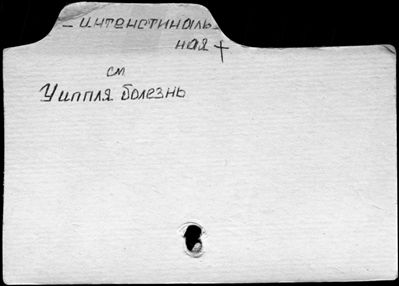 – интенстиналь-
ная +
см
Уиппля болезнь